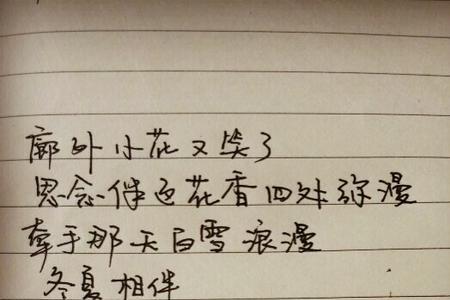 廊外小花又笑了
思念伴随花香四处弥漫
牵手那天白雪浪漫
冬夏相伴